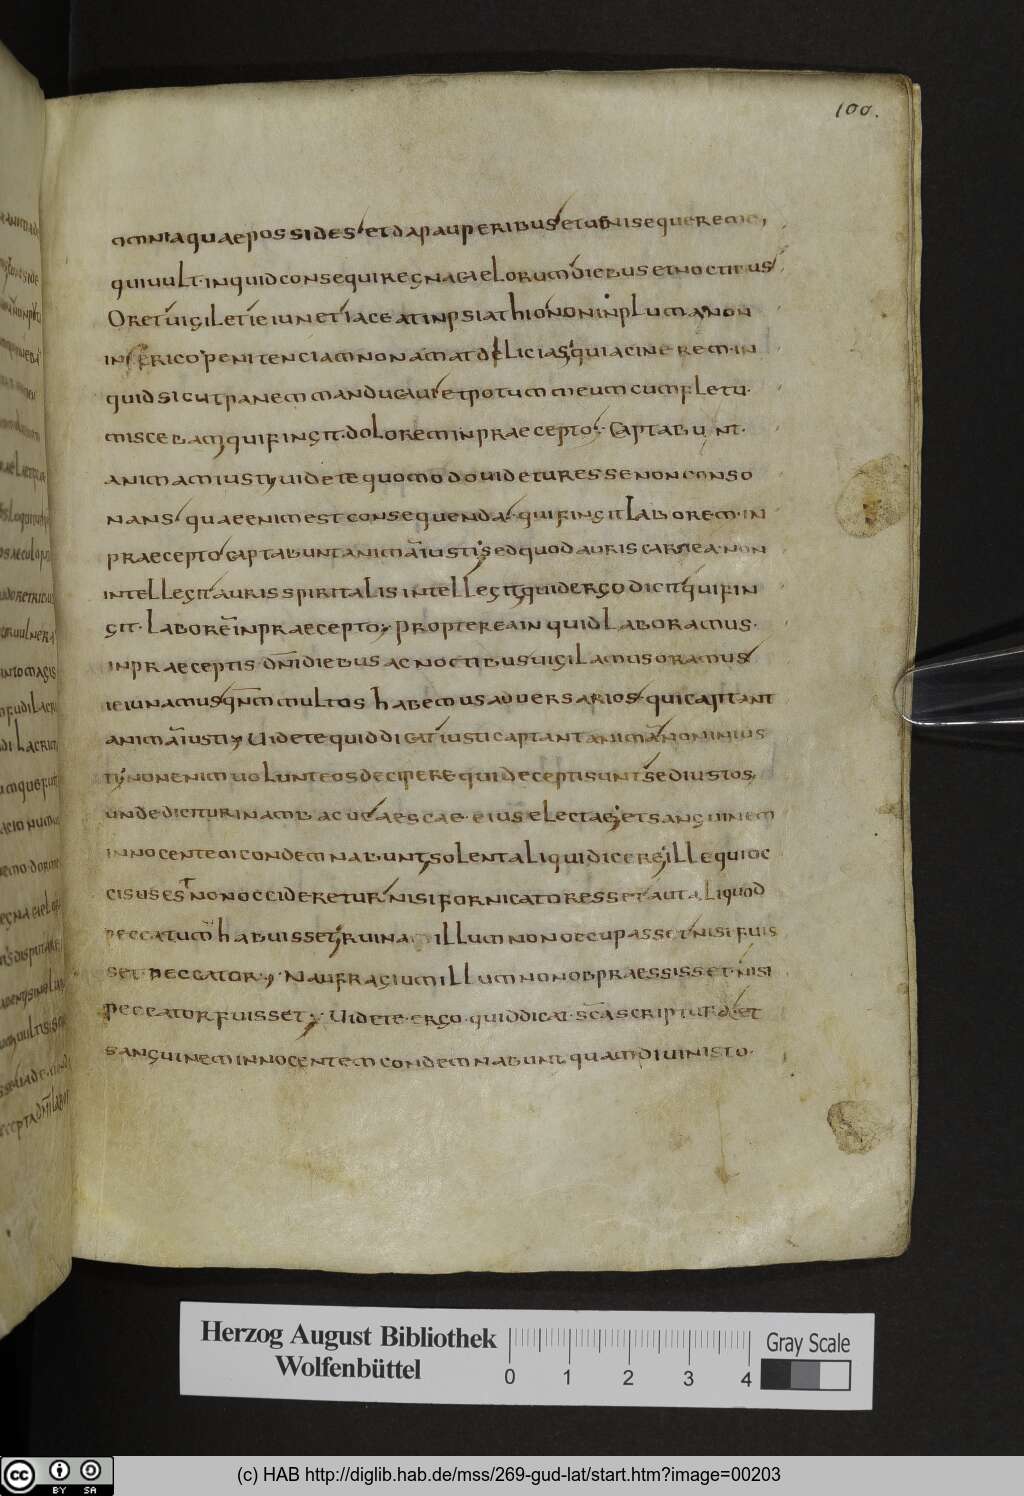 100.
omnia quae possides et da pauperibus et ueni sequere me,
qui uult inquid consequi regna caelorum diebus et noctibus
Oret uigilet ieiunet iaceat in psiathio non in pluma non
in serico penitenciam non amat delicias quia cinerem in
quid sicut panem manducaui et potum meum cum fletu
miscebam, qui fingit dolorem in praecepto. Captabunt
animam iusti, uidete quomodo uidetur esse non conso
nans quae enim est consequenda. qui fingit laborem in
praecepto captabunt animā iusti, sed quod auris carnea non
intellegit auris spiritalis intellegit, quid ergo dicit qui fin
git laborē in praecepto, propterea inquid laboramus.
in praeceptis dn̄i diebus ac noctibus uigilamus oramus
ieiunamus qn̄m multos habemus aduersarios qui captant
animā iusti, Uidete quid dicat iusti captant animā non inius
ti, non enim uolunt eos decipere qui decepti sunt sed iustos,
unde dicitur in ambacuc aescae eius electae, et sanguinem
innocentem condemnabunt, solent aliqui dicere, ille qui oc
cisus est non occideretur nisi fornicator esset aut aliquod
peccatum habuisset, ruina illum non occupasset nisi fuis
set peccator, Naufragium illum non obpraessisset nisi
peccator fuisset, Uidete ergo quid dicat sc̄a scriptura. et
sanguinem innocentem condemnabunt quam diu in isto
Herzog August Bibliothek
Wolfenbüttel
0 1 2 3 4
Gray Scale
(c) HAB http://diglib.hab.de/mss/269-gud-lat/start.htm?image=00203
cc BY SA